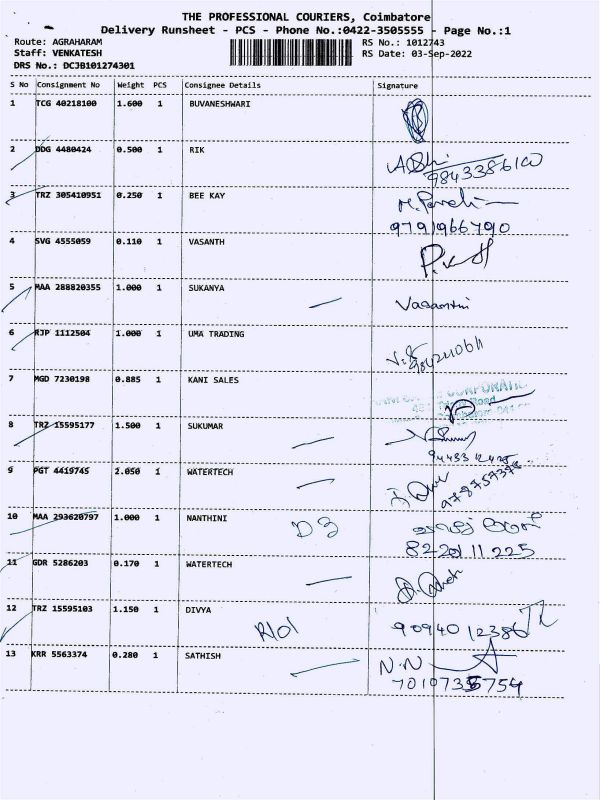 THE PROFESSIONAL COURIERS, Coimbatore
Delivery Runsheet - PCS - Phone No.:0422-3505555 - Page No.:1
Route: AGRAHARAM RS No.: 1012743
Staff: VENKATESH RS Date: 03-Sep-2022
DRS No.: DCJB101274301
S No Consignment No Weight PCS Consignee Details Signature
1 TCG 40218100 1.600 1 BUVANESHWARI
2 DDG 4480424 0.500 1 RIK
9843386100
3 TRZ 305410951 0.250 1 BEE KAY
9791966790
4 SVG 4555059 0.110 1 VASANTH
5 MAA 288820355 1.000 1 SUKANYA
Vasanthi
6 RJP 1112504 1.000 1 UMA TRADING
7 MGD 7230198 0.885 1 KANI SALES
8 TRZ 15595177 1.500 1 SUKUMAR
9 PGT 4419745 2.050 1 WATERTECH
10 MAA 293620797 1.000 1 NANTHINI D3
8220111225
11 GDR 5286203 0.170 1 WATERTECH
12 TRZ 15595103 1.150 1 DIVYA
9094012386
13 KRR 5563374 0.280 1 SATHISH N.N